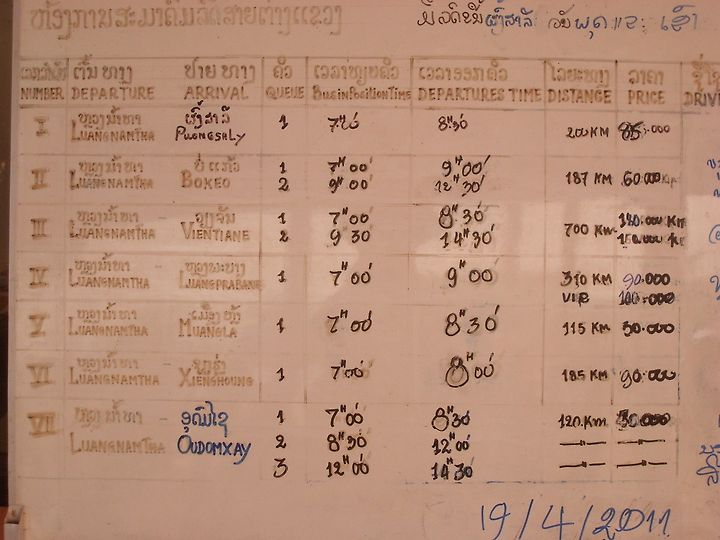 ຫ້ອງການສະມາຄົມລົດສາຍຕາງແຂວງ
NUMBER DEPARTURE ARRIVAL QUEUE Bus in Position Time DEPARTURES TIME DISTANCE PRICE
ຕົ້ນທາງ ປາຍທາງ ຄິວ ລາຄາ
ຫຼວງນ້ຳທາ ຜົ້ງສາລີ
I LUANGNAMTHA PHONGSALY 1 7H20 8H30 200 KM 85.000
ຫຼວງນ້ຳທາ ບໍ່ແກ້ວ 1 7H00 9H00
II LUANGNAMTHA BOKEO 2 9H00 12H30 187 KM 60.000
ຫຼວງນ້ຳທາ ວຽງຈັນ 1 7H00 8H30
III LUANGNAMTHA VIENTIANE 2 9H30 14H30 700 KM
ຫຼວງນ້ຳທາ ຫຼວງພະບາງ
IV LUANGNAMTHA LUANGPRABANG 1 7H00 9H00 310 KM 90.000
VIP 100.000
ຫຼວງນ້ຳທາ ເມືອງຫຼ້າ
V LUANGNAMTHA MUANGLA 1 7H00 8H30 115 KM 50.000
ຫຼວງນ້ຳທາ
VI LUANGNAMTHA XIENGHOUNG 1 7H00 8H00 185 KM 90.000
VII ຫຼວງນ້ຳທາ ອຸດົມໄຊ 1 7H00 8H30 120 Km
LUANGNAMTHA OUDOMXAY 2 8H30 12H00 —"— —"—
3 12H00 14H30 —"— —"—
19/4/2011